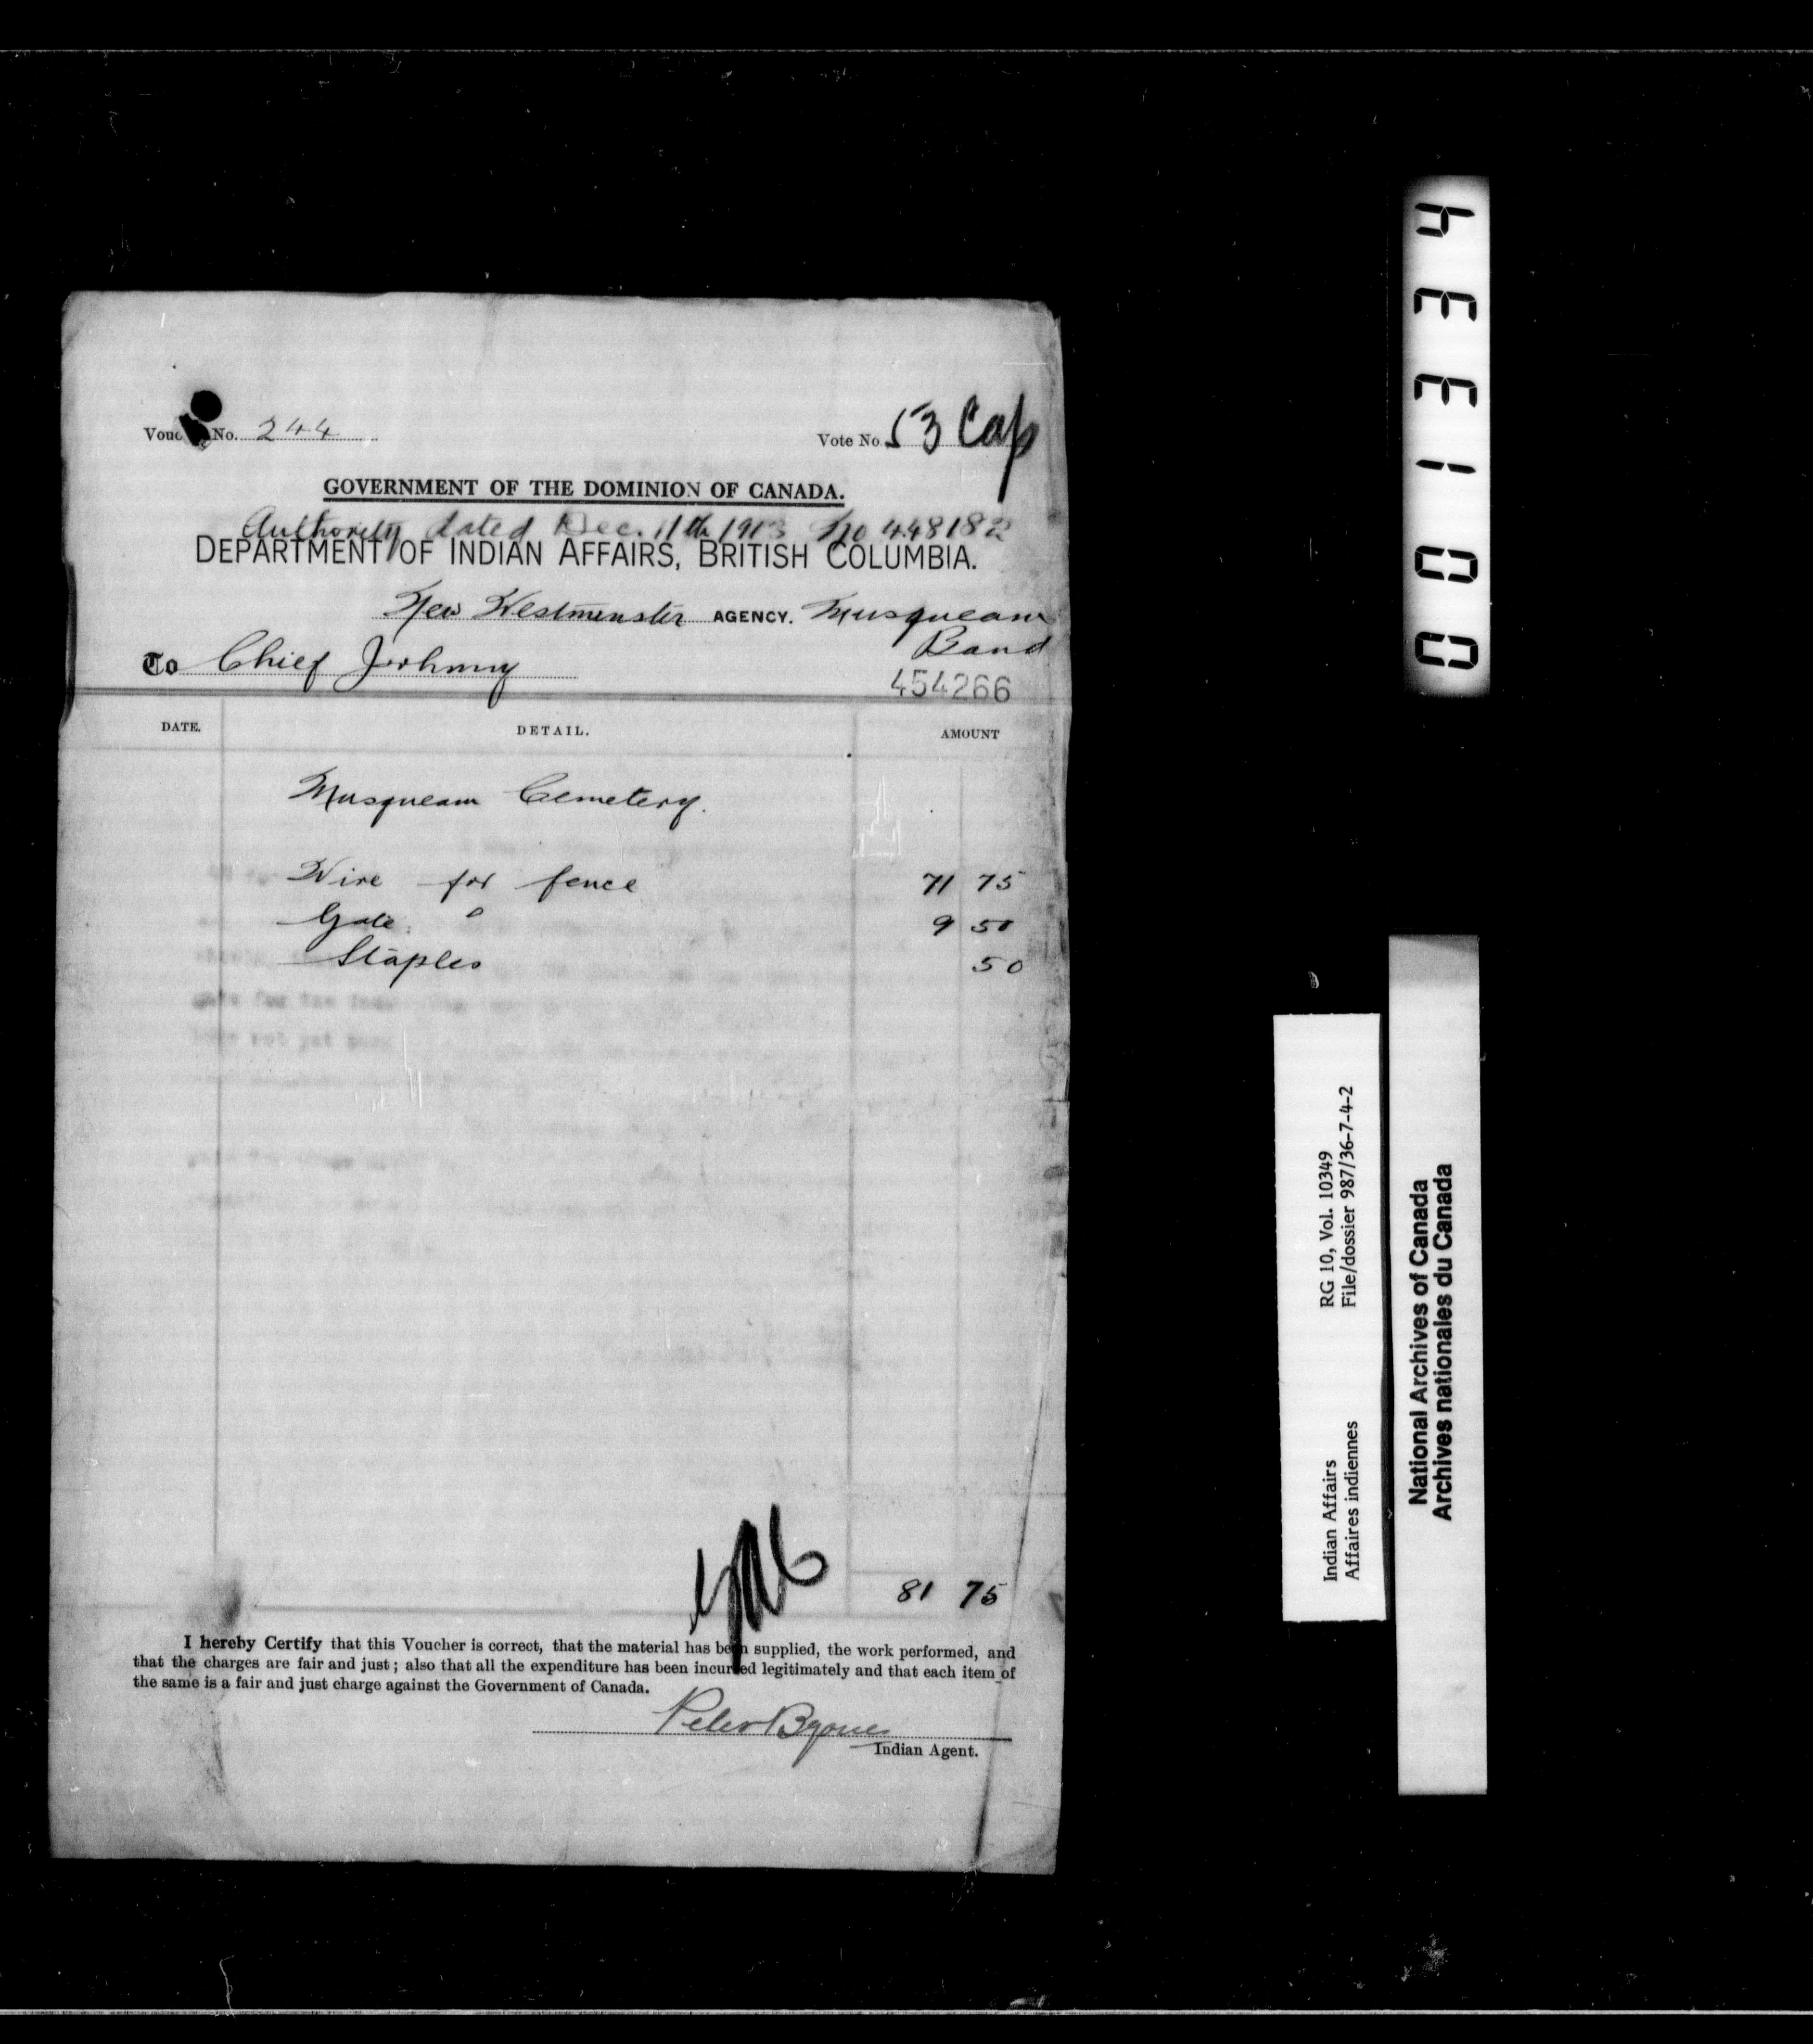 Voucher No. 244
Vote No. 53 Cap
GOVERNMENT OF THE DOMINION OF CANADA.
Authority dated Dec. 11th 1913 No 448182
DEPARTMENT OF INDIAN AFFAIRS, BRITISH COLUMBIA.
New Westminster AGENCY. Musqueam
Band
To Chief Johnny
454266
DATE. DETAIL. AMOUNT
Musqueam Cemetery.
Wire for fence 71 75
Gate " 9 50
Staples 50
81 75
I hereby Certify that this Voucher is correct, that the material has been supplied, the work performed, and
that the charges are fair and just; also that all the expenditure has been incurred legitimately and that each item of
the same is a fair and just charge against the Government of Canada.
Peter Byrne
Indian Agent.
001334
Indian Affairs RG 10, Vol. 10349
Affaires indiennes File/dossier 987/36-7-4-2
National Archives of Canada
Archives nationales du Canada